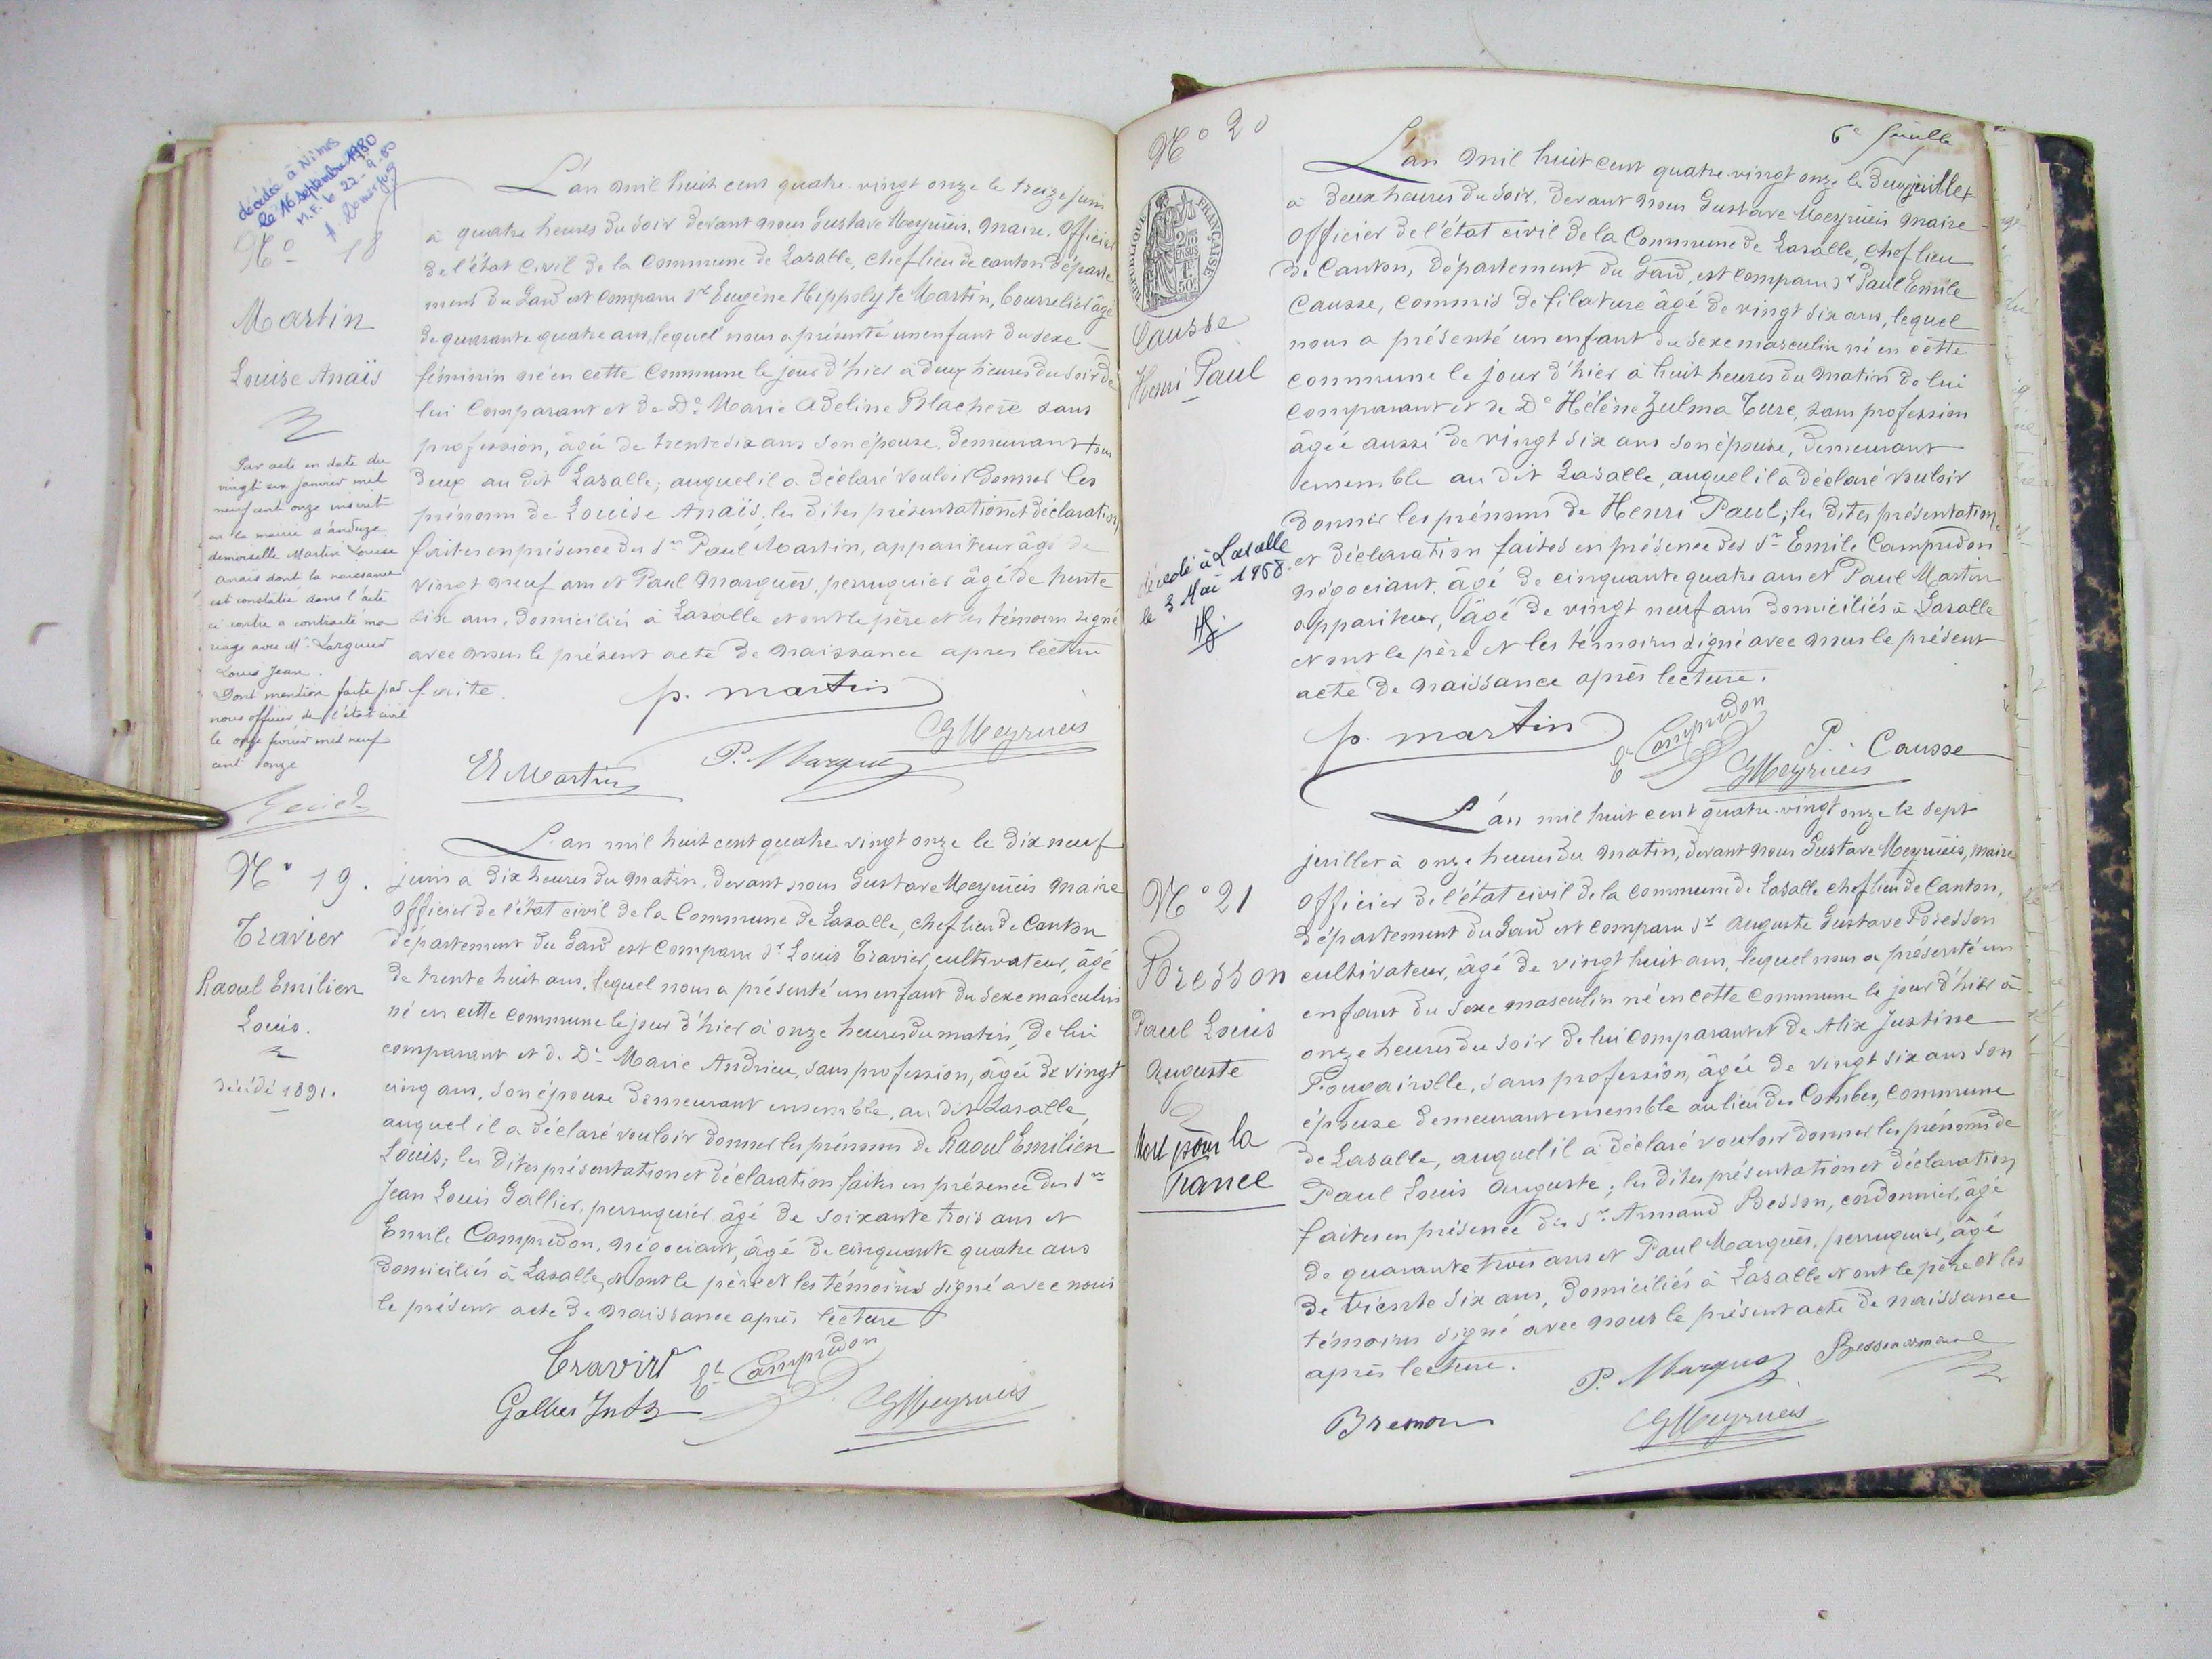 décédée à Nîmes
le 16 septembre 1980
N.F. le 22-9-80
N° 18
Martin
Louise Anaïs
Par acte en date du
vingt six janvier mil
neuf cent onze inscrit
en la mairie d'anduze
demoiselle Martin Louise
anais dont la naissance
est constatée dans l'acte
ci contre a contracté ma
riage avec Mr Larguier
Louis Jean.
Dont mention faite par
nous officier de l'état civil
le onze fevrier mil neuf
cent onze
L'an mil huit cent quatre-vingt onze le treize juin
à quatre heures du soir devant nous Gustave Meyrueis, maire, Officier
de l'état civil de la Commune de Lasalle, chef lieu de canton départe
ment du Gard est comparu Sr Eugène Hippolyte Martin, bourrelier âgé
de quarante quatre ans, lequel nous a présenté un enfant du sexe
féminin né en cette Commune le jour d'hier à deux heures du soir de
lui Comparant et de De Marie Adeline Blachere sans
profession, âgée de trente six ans son épouse, demeurant tous
deux au dit Lasalle; auquel il a déclaré vouloir donner les
prénoms de Louise Anaïs; les dites présentation et déclaration
faites en présence des Srs Paul Martin, appariteur âgé de
vingt neuf ans et Paul Marquès, perruquier âgé de trente
six ans, domiciliés à Lasalle et ont le père et les témoins signé
avec nous le présent acte de naissance apres lecture
faite.
p. martin
GMeyrueis
P. Marques
EH Martin
N° 19.
Travier
Raoul Emilien
Louis.
décédé 1891.
L'an mil huit cent quatre-vingt onze le dix neuf
juin à dix heures du matin, devant nous Gustave Meyrueis maire
Officier de l'état civil de la Commune de Lasalle, chef lieu de Canton
département du Gard est comparu Sr Louis Travier, cultivateur, âgé
de trente huit ans, lequel nous a présenté un enfant du sexe masculin
né en cette commune le jour d'hier à onze heures du matin, de lui
comparant et de De Marie Andrieu, sans profession, âgée de vingt
cinq ans, son épouse demeurant ensemble, au dit Lasalle,
auquel il a déclaré vouloir donner les prénoms de Raoul Emilien
Louis; les dites présentation et déclaration faites en présence des Srs
Jean Louis Gallier, perruquier âgé de soixante trois ans et
Emile Campredon, négociant, âgé de cinquante quatre ans
domiciliés à Lasalle, et ont le père et les témoins signé avec nous
le présent acte de naissance après lecture
Travier
Ee Campredon
GMeyrueis
N° 20
6e feuille
RÉPUBLIQUE FRANÇAISE
Causse
Henri Paul
décédé à Lasalle
le 3 Mai 1968.
L'an mil huit cent quatre-vingt onze le deux juillet
à deux heures du soir, devant nous Gustave Meyrueis maire
Officier de l'état civil de la Commune de Lasalle, chef lieu
de Canton, département du Gard, est comparu Sr Paul Emile
Causse, commis de filature âgé de vingt six ans, lequel
nous a présenté un enfant du sexe masculin né en cette
commune le jour d'hier à huit heures du matin de lui
comparant et de De Hélène Zulma Ture, sans profession
âgée aussi de vingt six ans son épouse, demeurant
ensemble au dit Lasalle, auquel il a déclaré vouloir
donner les prénoms de Henri Paul; les dites présentation
et déclaration faites en présence des Srs Emile Campredon
négociant, âgé de cinquante quatre ans et Paul Martin
appariteur, âgé de vingt neuf ans domiciliés à Lasalle
et ont le père et les témoins signé avec nous le présent
acte de naissance après lecture.
p. martin
Ee Campredon
P. Causse
GMeyrueis
N° 21
Bresson
Paul Louis
Auguste
Mort pour la
France
L'an mil huit cent quatre-vingt onze le sept
juillet à onze heures du matin, devant nous Gustave Meyrueis, maire
Officier de l'état civil de la commune de Lasalle chef lieu de Canton,
département du Gard est comparu Sr Auguste Gustave Bresson
cultivateur, âgé de vingt huit ans, lequel nous a présenté un
enfant du sexe masculin né en cette Commune le jour d'hier à
onze heures du soir de lui comparant et de Alix Justine
Fougairolle, sans profession, âgée de vingt six ans son
épouse demeurant ensemble au lieu des Combes, commune
de Lasalle, auquel il a déclaré vouloir donner les prénoms de
Paul Louis Auguste; les dites présentation et déclaration
faites en présence des Srs Armand Besson, cordonnier, âgé
de quarante trois ans et Paul Marquès, perruquier, âgé
de trente six ans, domiciliés à Lasalle et ont le père et les
témoins signé avec nous le présent acte de naissance
après lecture.
P. Marques
Besson armand
Bresson
GMeyrueis